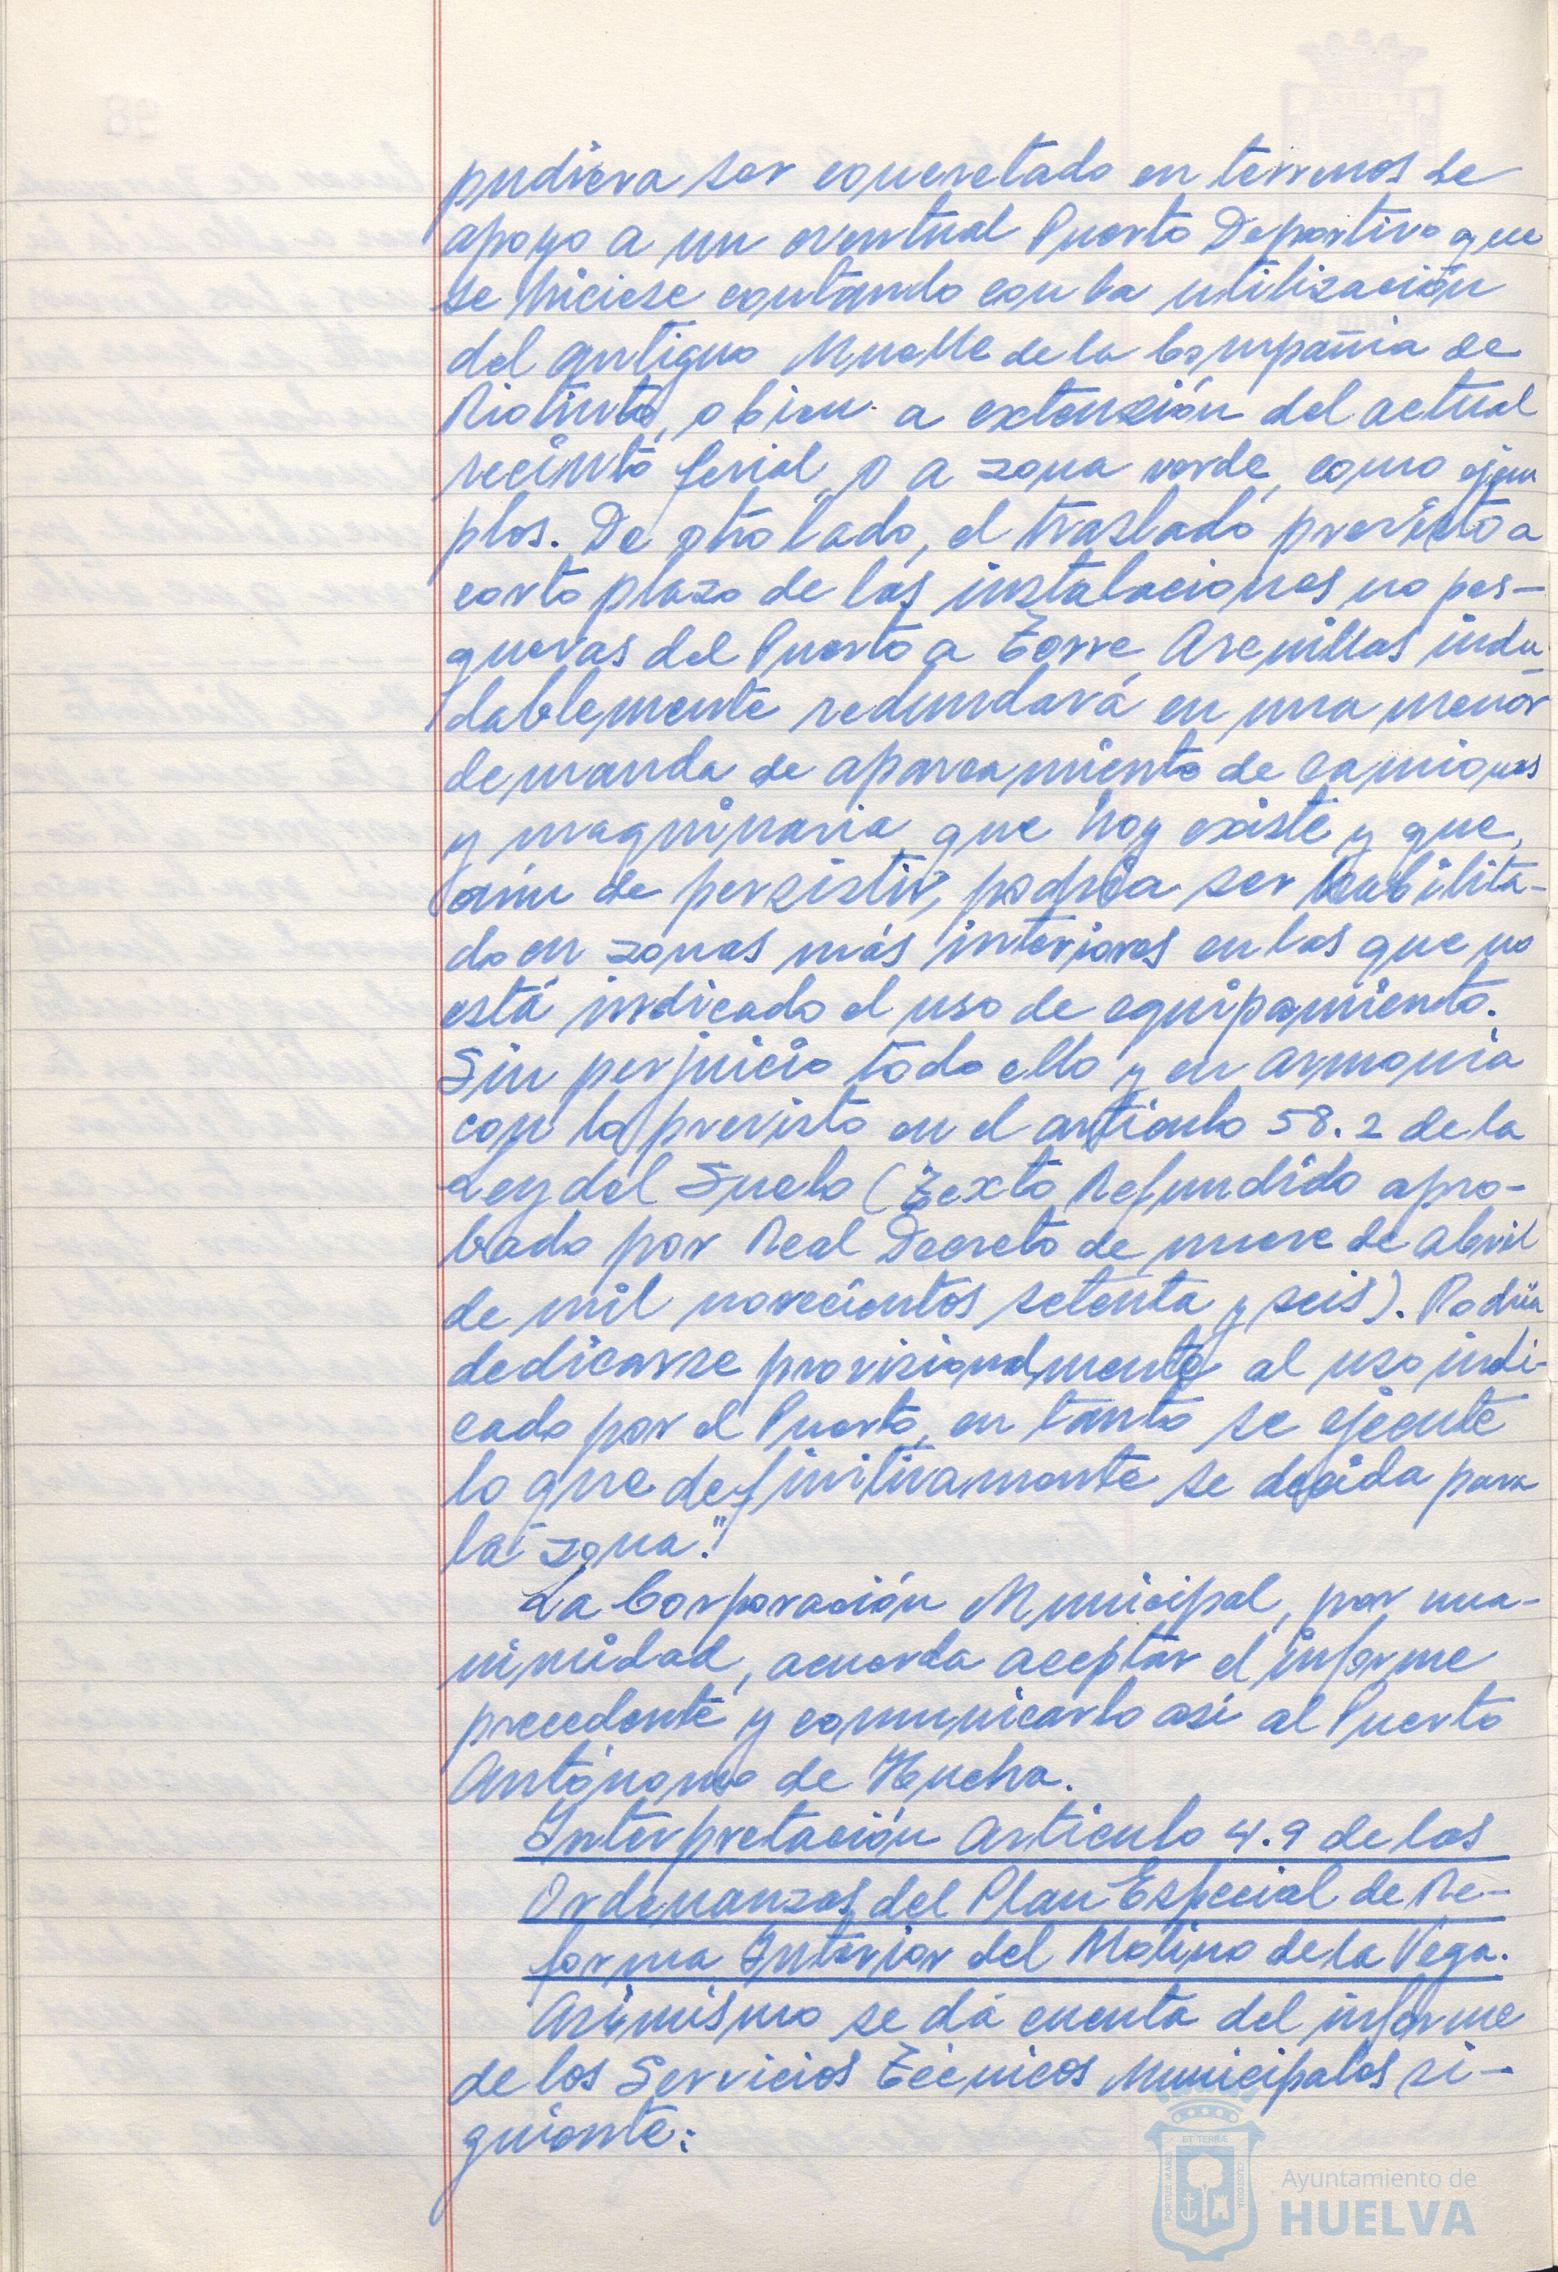 pudiera ser concretado en terrenos de
apoyo a un eventual Puerto Deportivo que
se hiciese contando con la utilización
del antiguo Muelle de la Compañia de
Riotinto, o bien a extensión del actual
recinto ferial, o a zona verde, como ejem
plos. De otro lado, el traslado previsto a
corto plazo de las instalaciones no pes-
queras del Puerto a Torre Arenillas indu-
dablemente redundará en una menor
demanda de aparcamiento de camiones
y maquinaria que hoy existe y que,
aún de persistir, podría ser habilita-
do en zonas más interiores en las que no
está indicado el uso de equipamiento.
Sin perjuicio todo ello y en armonía
con lo previsto en el artículo 58.2 de la
Ley del Suelo (Texto Refundido apro-
bado por Real Decreto de nueve de abril
de mil novecientos setenta y seis). Podría
dedicarse provisionalmente al uso indi-
cado por el Puerto, en tanto se ejecute
lo que definitivamente se decida para
la zona."
La Corporación Municipal, por una-
nimidad, acuerda aceptar el informe
precedente y comunicarlo así al Puerto
Autónomo de Huelva.
Interpretación Artículo 4.9 de las
Ordenanzas del Plan Especial de Re-
forma Interior del Molino de la Vega.
Asimismo se dá cuenta del informe
de los Servicios Técnicos Municipales si-
guiente:
Ayuntamiento de
HUELVA